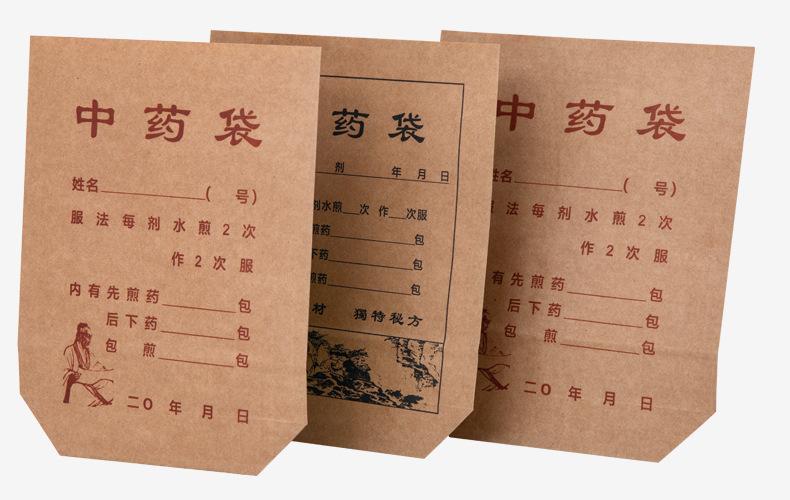 中药袋
姓名____________( 号)
服法每剂水煎2次
作2次服
内有先煎药_________包
后下药_________包
包煎_________包
二O 年 月 日
药袋
剂 年 月 日
剂水煎__次 作__次服
煎药__________包
下药__________包
煎药__________包
材 獨特秘方
中药袋
姓名____________( 号)
服法每剂水煎2次
作2次服
有先煎药_________包
后下药_________包
包煎_________包
二O 年 月 日